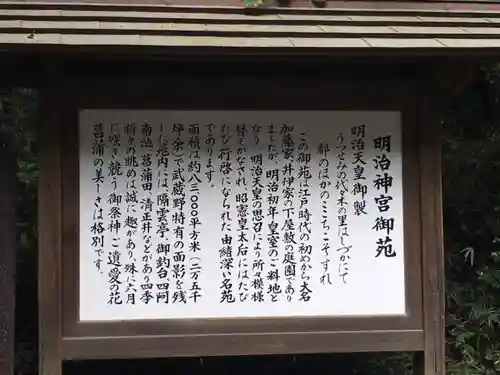 明治神宮御苑
明治天皇御製
うつせみの代々木の里はしづかにて
都のほかのここちこそすれ
この御苑は江戸時代の初めから大名
加藤家、井伊家の下屋敷の庭園であり
ましたが、明治初年皇室のご料地と
なり 明治天皇の思召により所々模様
替えがなされ、昭憲皇太后にはたび
たび行啓になられた由緒深い名苑
であります。
面積は約八三〇〇〇平方米(二万五千
坪余)で武蔵野特有の面影を残
した苑内には、隔雲亭 御釣台 四阿
南池 菖蒲田 清正井などがあり四季
折々の眺めは誠に趣があり、殊に六月
に咲き競う御祭神ご遺愛の花
菖蒲の美しさは格別です。